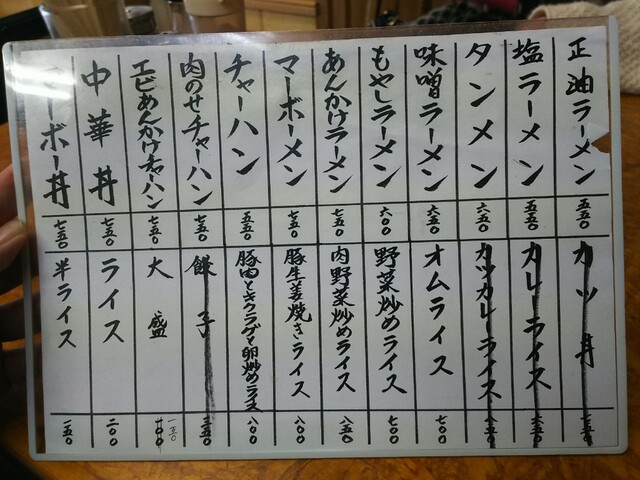 正油ラーメン 五五〇
塩ラーメン 五五〇
タンメン 六五〇
味噌ラーメン 六五〇
もやしラーメン 六〇〇
あんかけラーメン 七五〇
マーボーメン 七五〇
チャーハン 五五〇
肉のせチャーハン 七五〇
エビあんかけチャーハン 七五〇
中華丼 七五〇
マーボー丼 七五〇
カツ丼 七五〇
カレーライス 六五〇
カツカレーライス 八五〇
オムライス 七〇〇
野菜炒めライス 七〇〇
肉野菜炒めライス 八五〇
豚生姜焼きライス 八〇〇
豚肉とキクラゲと卵炒めライス 八〇〇
餃子 三五〇
大盛 一五〇
ライス 二〇〇
半ライス 一五〇